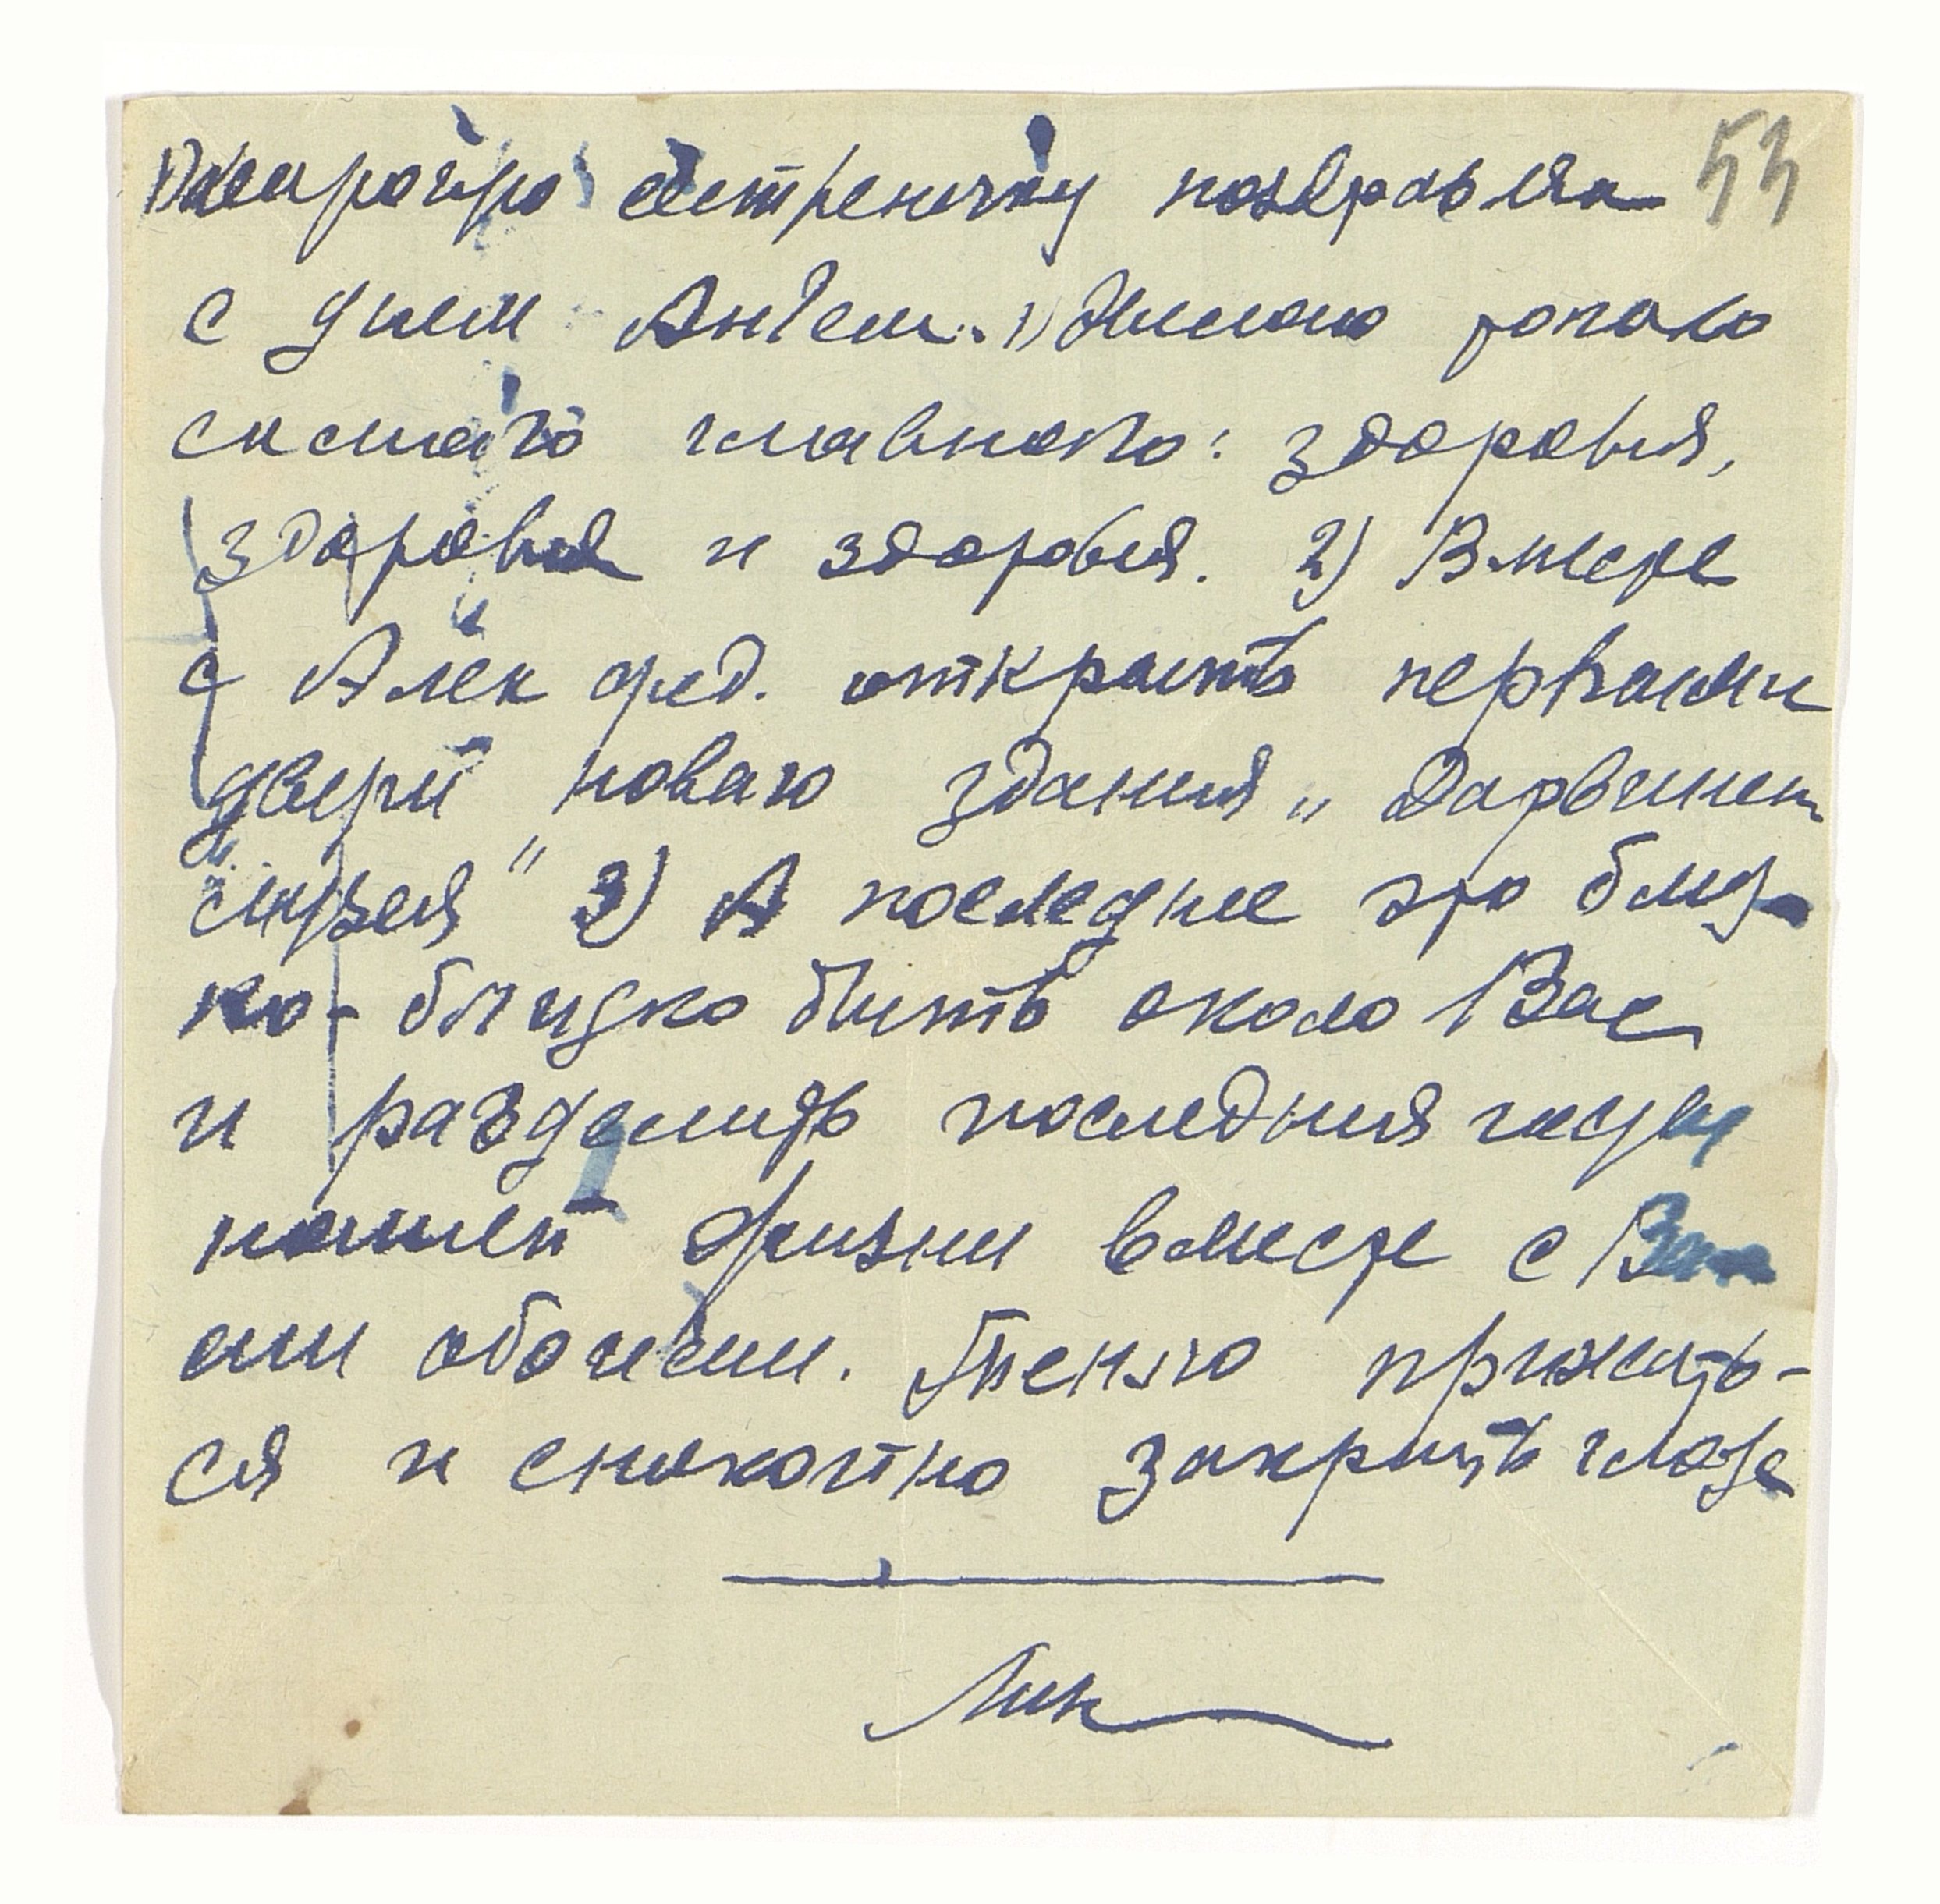 сестреночку поздравляю 53
с днем Ангела. 1) Желаю
самаго главного: здоровья,
здоровья и здоровья. 2) Вместе
с Алек фед. открыть первыми
двери новаго здания „Дарвинск
музея" 3) А последнее это близ-
ко-близко быть около Вас
и разделить последния часы
нашей жизни вместе с Ва
ми обоими. Тепло прижать-
ся и спокойно закрыть глаза